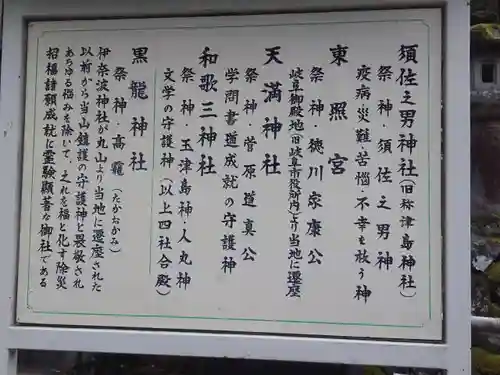 須佐之男神社（旧称津島神社）
祭神・須佐之男神
疫病・災難苦悩・不幸を救う神
東照宮
祭神・徳川家康公
岐阜御殿地（旧岐阜市役所内）より当地に遷座
天満神社
祭神・菅原道真公
学問書道成就の守護神
和歌三神社
祭神・玉津島神・人丸神
文学の守護神（以上四社合殿）
黒龍神社
祭神・高龗（たかおかみ）
伊奈波神社が丸山より当地に遷座された
以前から当山鎮護の守護神と畏敬され
あらゆる悩みを除いて、之れを福と化す除災
招福諸願成就に霊験顕著な御社である